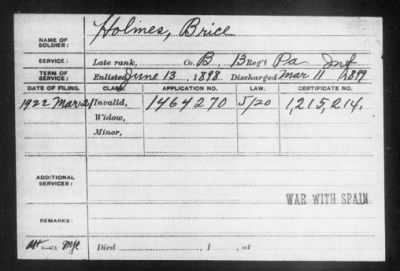 NAME OF SOLDIER: Holmes, Brice
SERVICE: Late rank, Co. B, 13 Reg't Pa Inf
TERM OF SERVICE: Enlisted June 13, 1898. Discharged Mar 11, 1899
DATE OF FILING. CLASS. APPLICATION NO. LAW. CERTIFICATE NO.
1922 Mar 21 Invalid, 1464270 5/20 1,215,214.
Widow,
Minor,
ADDITIONAL SERVICES:
WAR WITH SPAIN
REMARKS:
Died , 1 , at